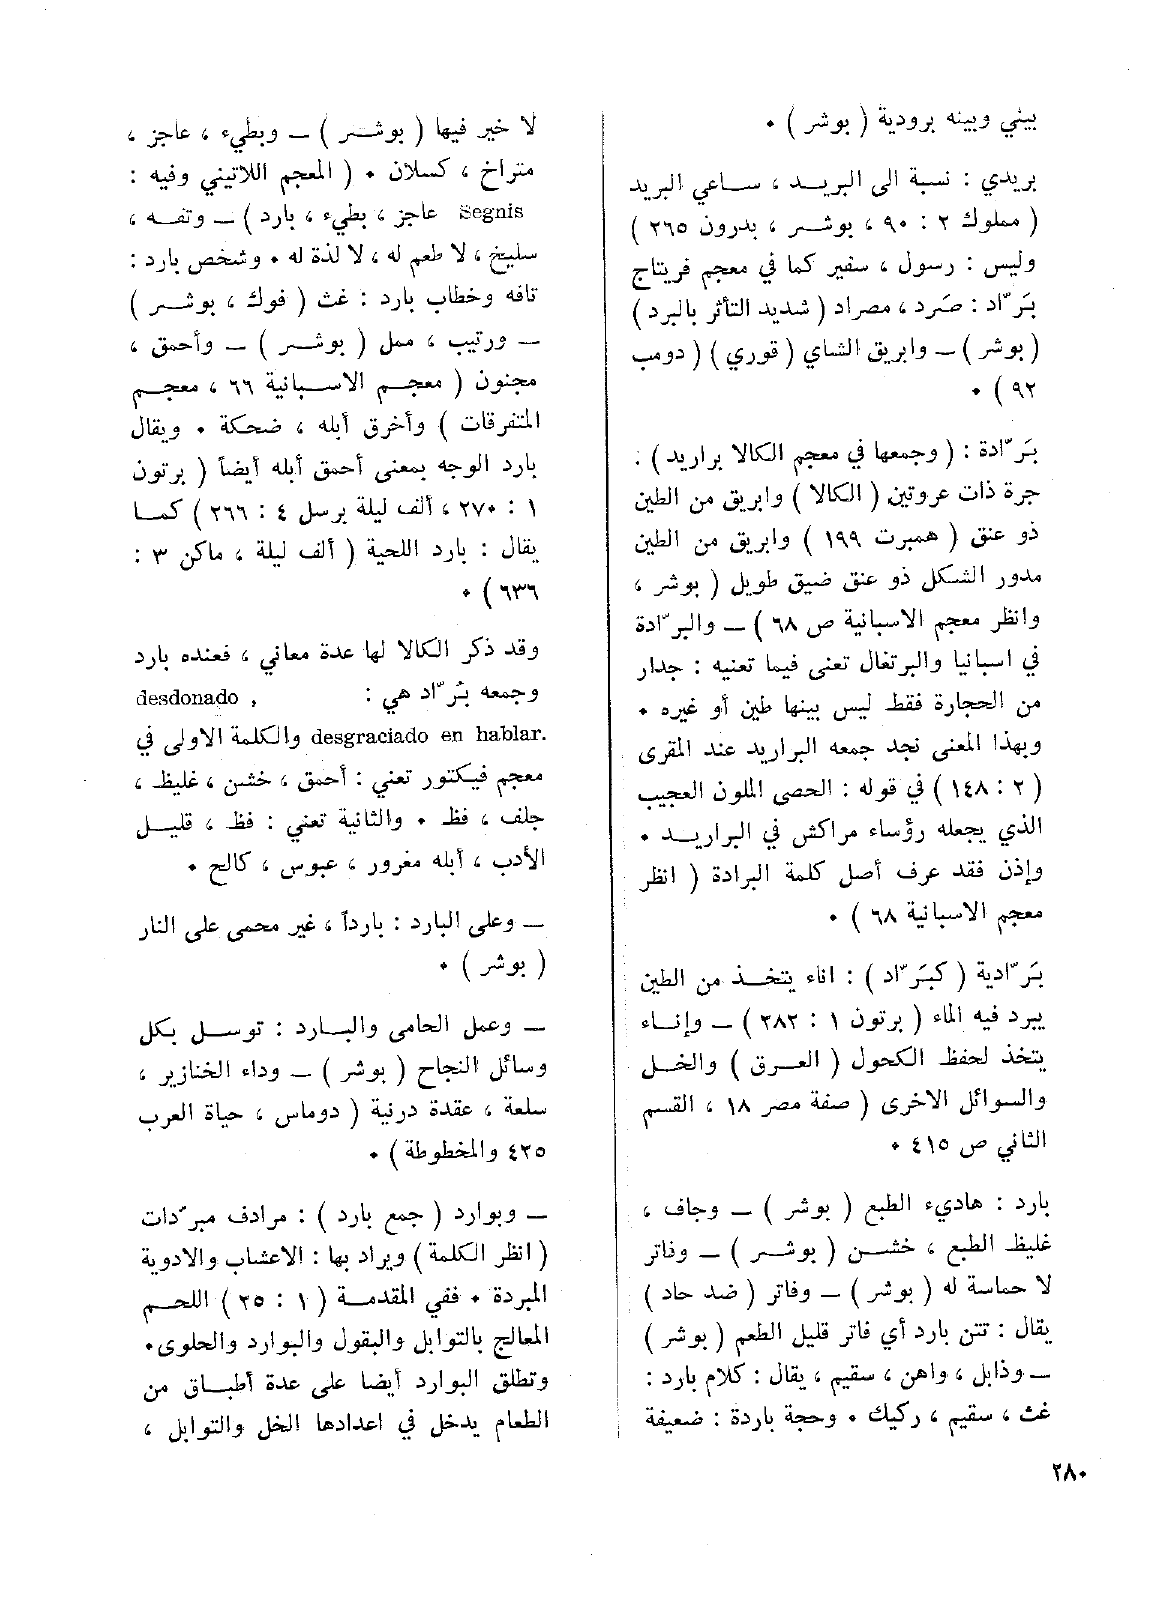 بيني وبينه برودية ( بوشر ) .
بريدي : نسبة الى البريد ، ساعي البريد
( مملوك ٢ : ٩٠ ، بوشر ، بدرون ٢٦٥ )
وليس : رسول ، سفير كما في معجم فريتاج
بَرّاد : صَرد ، مصراد ( شديد التأثر بالبرد )
( بوشر ) — وابريق الشاي ( قوري ) ( دومب
٩٢ ) .
بَرّادة : ( وجمعها في معجم الكالا براريد ) :
جرة ذات عروتين ( الكالا ) وابريق من الطين
ذو عنق ( همبرت ١٩٩ ) وابريق من الطين
مدور الشكل ذو عنق ضيق طويل ( بوشر ،
وانظر معجم الاسبانية ص ٦٨ ) — والبرّادة
في اسبانيا والبرتغال تعنى فيما تعنيه : جدار
من الحجارة فقط ليس بينها طين أو غيره .
وبهذا المعنى نجد جمعه البراريد عند المقرى
( ٢ : ١٤٨ ) في قوله : الحصى الملون العجيب
الذي يجعله رؤساء مراكش في البراريد .
وإذن فقد عرف أصل كلمة البرادة ( انظر
معجم الاسبانية ٦٨ ) .
بَرّادية ( كبَرّاد ) : اناء يتخذ من الطين
يبرد فيه الماء ( برتون ١ : ٣٨٢ ) — وإناء
يتخذ لحفظ الكحول ( العرق ) والخل
والسوائل الاخرى ( صفة مصر ١٨ ، القسم
الثاني ص ٤١٥ .
بارد : هاديء الطبع ( بوشر ) — وجاف ،
غليظ الطبع ، خشن ( بوشر ) — وفاتر
لا حماسة له ( بوشر ) — وفاتر ( ضد حاد )
يقال : تتن بارد أي فاتر قليل الطعم ( بوشر )
— وذابل ، واهن ، سقيم ، يقال : كلام بارد :
غث ، سقيم ، ركيك . وحجة باردة : ضعيفة
لا خير فيها ( بوشر ) — وبطيء ، عاجز ،
متراخ ، كسلان . ( المعجم اللاتيني وفيه :
Segnis عاجز ، بطيء ، بارد ) — وتفه ،
سليخ ، لا طعم له ، لا لذة له . وشخص بارد :
تافه وخطاب بارد : غث ( فوك ، بوشر )
— ورتيب ، ممل ( بوشر ) — وأحمق ،
مجنون ( معجم الاسبانية ٦٦ ، معجم
المتفرقات ) وأخرق أبله ، ضحكة . ويقال
بارد الوجه بمعنى أحمق أبله أيضاً ( برتون
١ : ٢٧٠ ، ألف ليلة برسل ٤ : ٢٦٦ ) كما
يقال : بارد اللحية ( ألف ليلة ، ماكن ٣ :
٦٣٦ ) .
وقد ذكر الكالا لها عدة معاني ، فعنده بارد
وجمعه بُرّاد هي : desdonado ,
desgraciado en hablar. والكلمة الاولى في
معجم فيكتور تعني : أحمق ، خشن ، غليظ ،
جلف ، فظ . والثانية تعني : فظ ، قليل
الأدب ، أبله مغرور ، عبوس ، كالح .
— وعلى البارد : بارداً ، غير محمى على النار
( بوشر ) .
— وعمل الحامى والبارد : توسل بكل
وسائل النجاح ( بوشر ) — وداء الخنازير ،
سلعة ، عقدة درنية ( دوماس ، حياة العرب
٤٢٥ والمخطوطة ) .
— وبوارد ( جمع بارد ) : مرادف مبرّدات
( انظر الكلمة ) ويراد بها : الاعشاب والادوية
المبردة . ففي المقدمة ( ١ : ٢٥ ) اللحم
المعالج بالتوابل والبقول والبوارد والحلوى .
وتطلق البوارد أيضا على عدة أطباق من
الطعام يدخل في اعدادها الخل والتوابل ،
٢٨٠